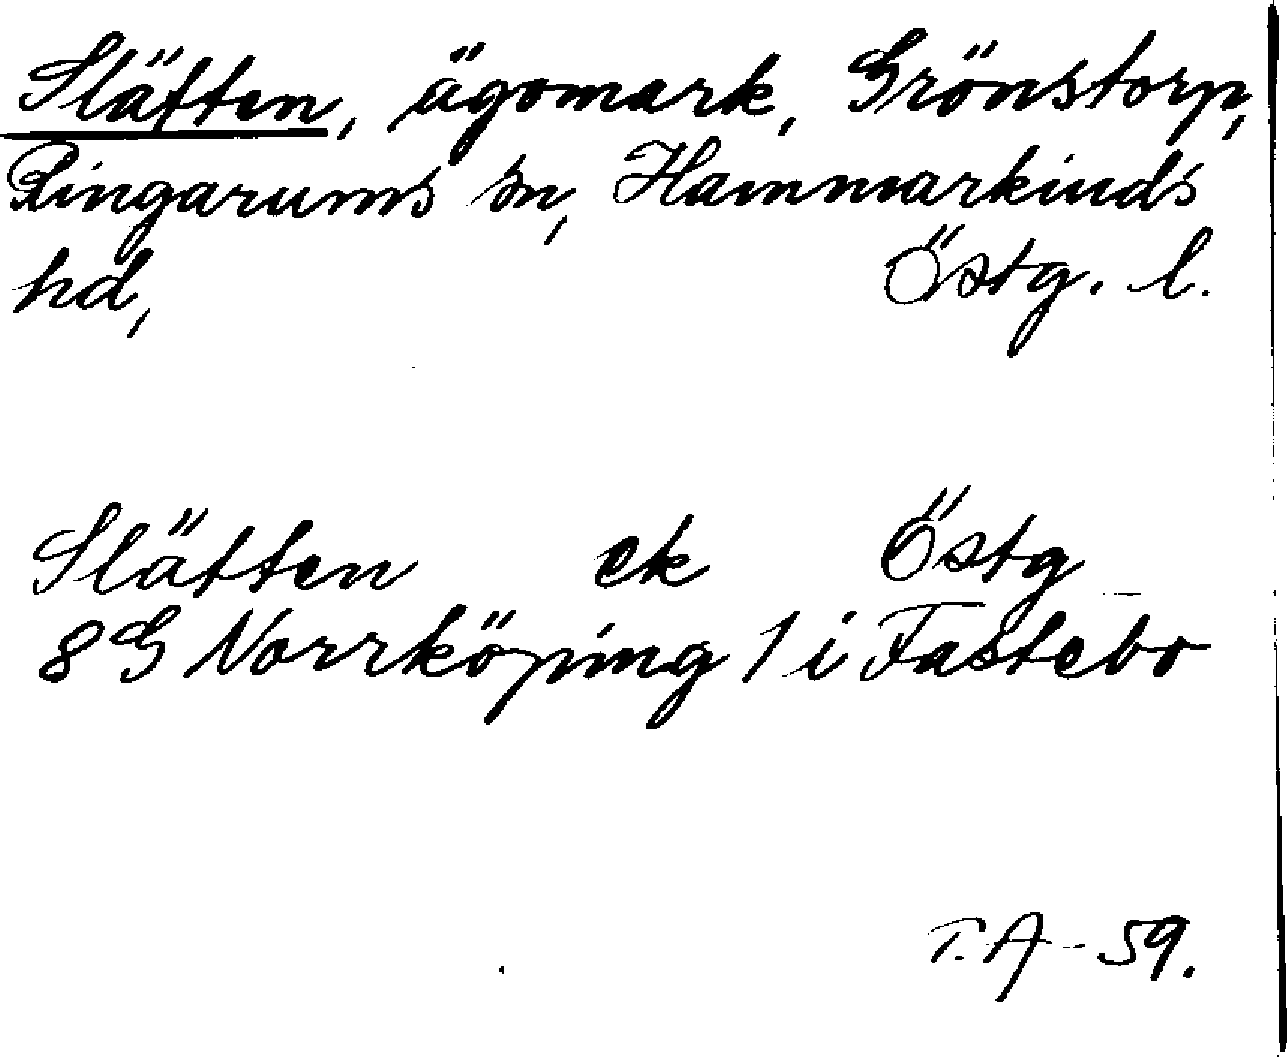 Slätten, ägomark, Grönstorp,
Ringarums sn, Hammarkinds
hd, Östg. l.
Slätten ek Östg
8G Norrköping 1 i Fastebo
T.A-59.